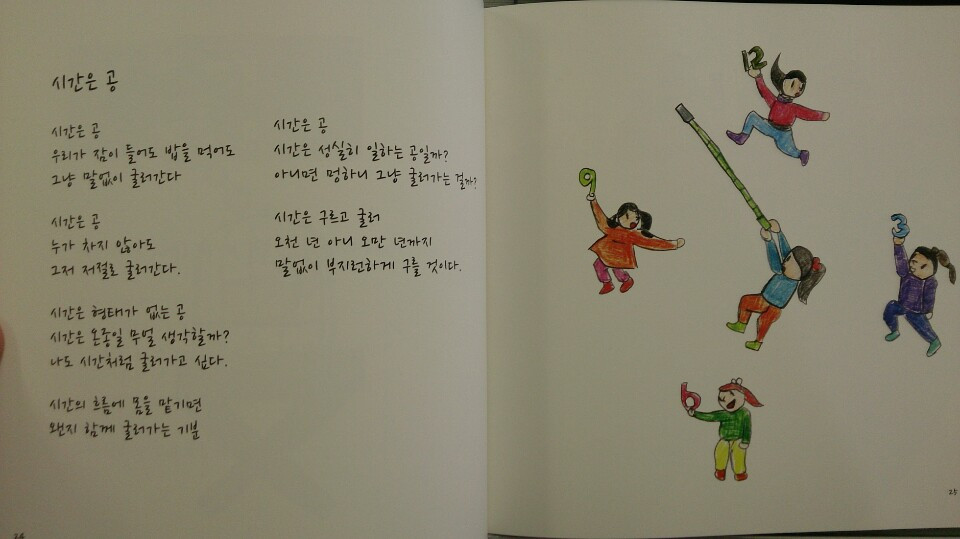 시간은 공
시간은 공
우리가 잠이 들어도 밥을 먹어도
그냥 말없이 굴러간다
시간은 공
누가 차지 않아도
그저 저절로 굴러간다.
시간은 형태가 없는 공
시간은 온종일 무얼 생각할까?
나도 시간처럼 굴러가고 싶다.
시간의 흐름에 몸을 맡기면
왠지 함께 굴러가는 기분
시간은 공
시간은 성실히 일하는 공일까?
아니면 멍하니 그냥 굴러가는 걸까?
시간은 구르고 굴러
오천 년 아니 오만 년까지
말없이 부지런하게 구를 것이다.
24
12
9
3
6
25